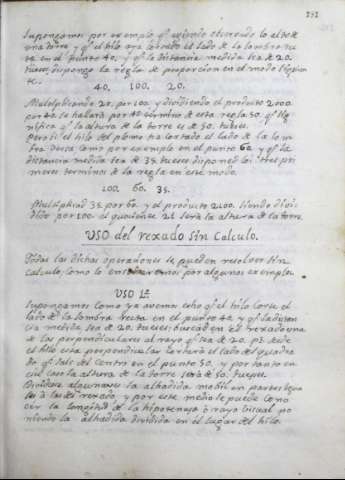 Supongamos por exemplo qᵉ usiendo observado lo alto de
una torre y qᵉ el hilo aya cortado el lado de la sombra rec
ta en el punto 40. y qᵉ la distancia medida sea de 20.
tueses dispongo la regla de proporcion en el modo siguien
te.
40. 100. 20.
Multiplicando 20. por 100. y dividiendo el producto 2000.
por 40. se hallarà por 4º termino de esta regla 50. qᵉ sig
nifica qᵉ la altura de la torre es de 50. tueses.
Pero si el hilo del plomo ha cortado el lado de la som
bra versa como por exemplo en el punto 60 y qᵉ la
distancia medida sea de 35. tueses disponed los tres pri
meros terminos de la regla en este modo.
100. 60. 35.
Multiplicad 35. por 60. y el producto 2100. siendo divi
dido por 100. el quociente 21 serà la altura de la torre.
USO del rexado sin Calculo.
Todas las dichas operaciones se pueden resolver sin
Calculo, como lo enseñaremos por algunos exemplos.
USO 1º
Supongamos como ya avemos echo qᵉ el hilo corte el
lado de la sombra recta en el punto 40. y qᵉ la distan
cia medida sea de 20. tueses; buscad en el rexado una
de las perpendiculares al rayo qᵉ sea de 20. ps. desde
el hilo esta perpendicular cortarà el lado del quadra
do qᵉ sale del Centro en el punto 50. y por tanto en
este caso la altura de la torre serà de 50. tueses.
Dividese algunas vezes la alhadida mobil en partes igua
les à las del rexado, y por este medio se puede cono
cer la longitud de la hipotenusa ò rayo visual po
niendo la alhadida dividida en el lugar del hilo.